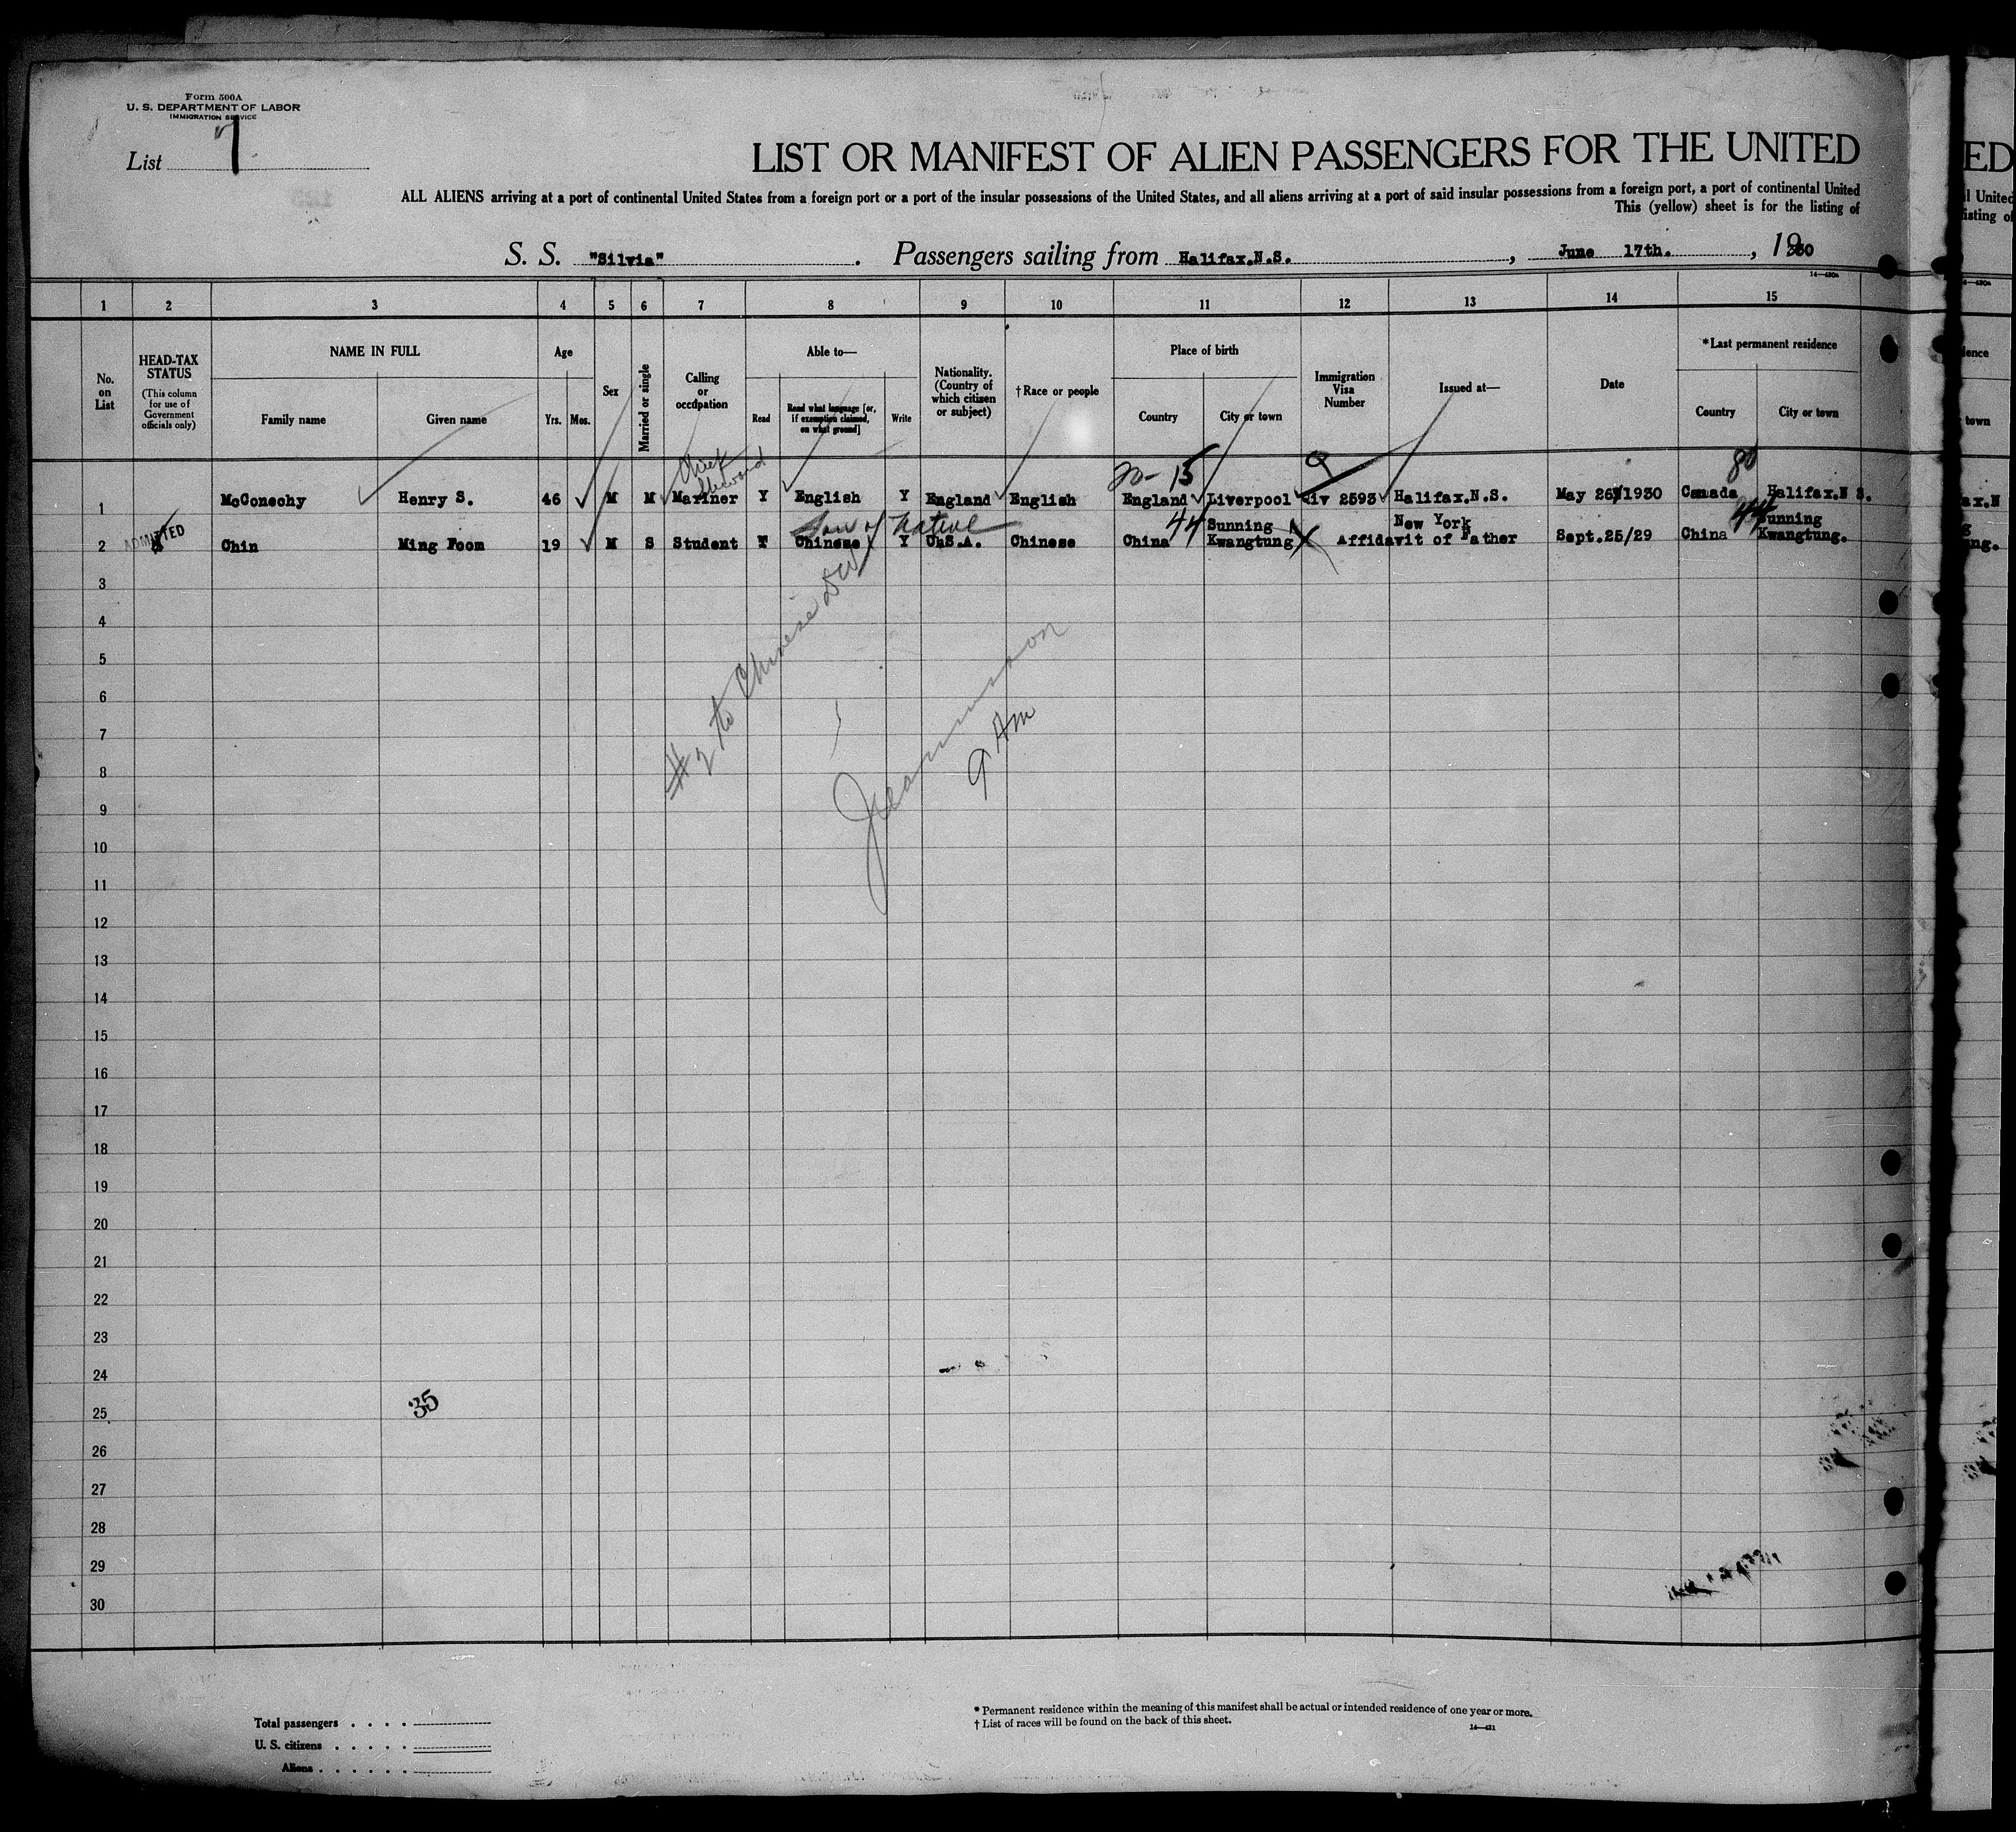 Form 500A
U. S. DEPARTMENT OF LABOR
IMMIGRATION SERVICE
List 7
LIST OR MANIFEST OF ALIEN PASSENGERS FOR THE UNITED
ALL ALIENS arriving at a port of continental United States from a foreign port or a port of the insular possessions of the United States, and all aliens arriving at a port of said insular possessions from a foreign port, a port of continental United
This (yellow) sheet is for the listing of
S. S. "Silvia" . Passengers sailing from Halifax.N.S. , June 17th. , 1930
14—430a
1 2 3 4 5 6 7 8 9 10 11 12 13 14 15
No. on List
HEAD-TAX STATUS
(This column for use of Government officials only)
NAME IN FULL
Family name
Given name
Age
Yrs.
Mos.
Sex
Married or single
Calling or occupation
Able to—
Read
Read what language [or, if exemption claimed, on what ground]
Write
Nationality. (Country of which citizen or subject)
† Race or people
Place of birth
Country
City or town
Immigration Visa Number
Issued at—
Date
*Last permanent residence
Country
City or town
Chief Steward
20-15
80
1 McConechy Henry S. 46 M M Mariner Y English Y England English England Liverpool Qiv 2593 Halifax.N.S. May 26/1930 Canada Halifax.N S.
Son of Native
44
44
ADMITTED
2 Chin Ming Foom 19 M S Student Y Chinese Y U.S.A. Chinese China Sunning Kwangtung New York Affidavit of Father Sept.25/29 China Sunning Kwangtung.
#2 to Chinese Div
9 Am
3
4
5
6
7
8
9
10
11
12
13
14
15
16
17
18
19
20
21
22
23
24
25
26
27
28
29
30
35
Total passengers . . . .
U. S. citizens . . . . .
Aliens . . . . . .
* Permanent residence within the meaning of this manifest shall be actual or intended residence of one year or more.
† List of races will be found on the back of this sheet.
14—431
ED
l United
isting of
14—430a
dence
town
ax.N
g
ng.